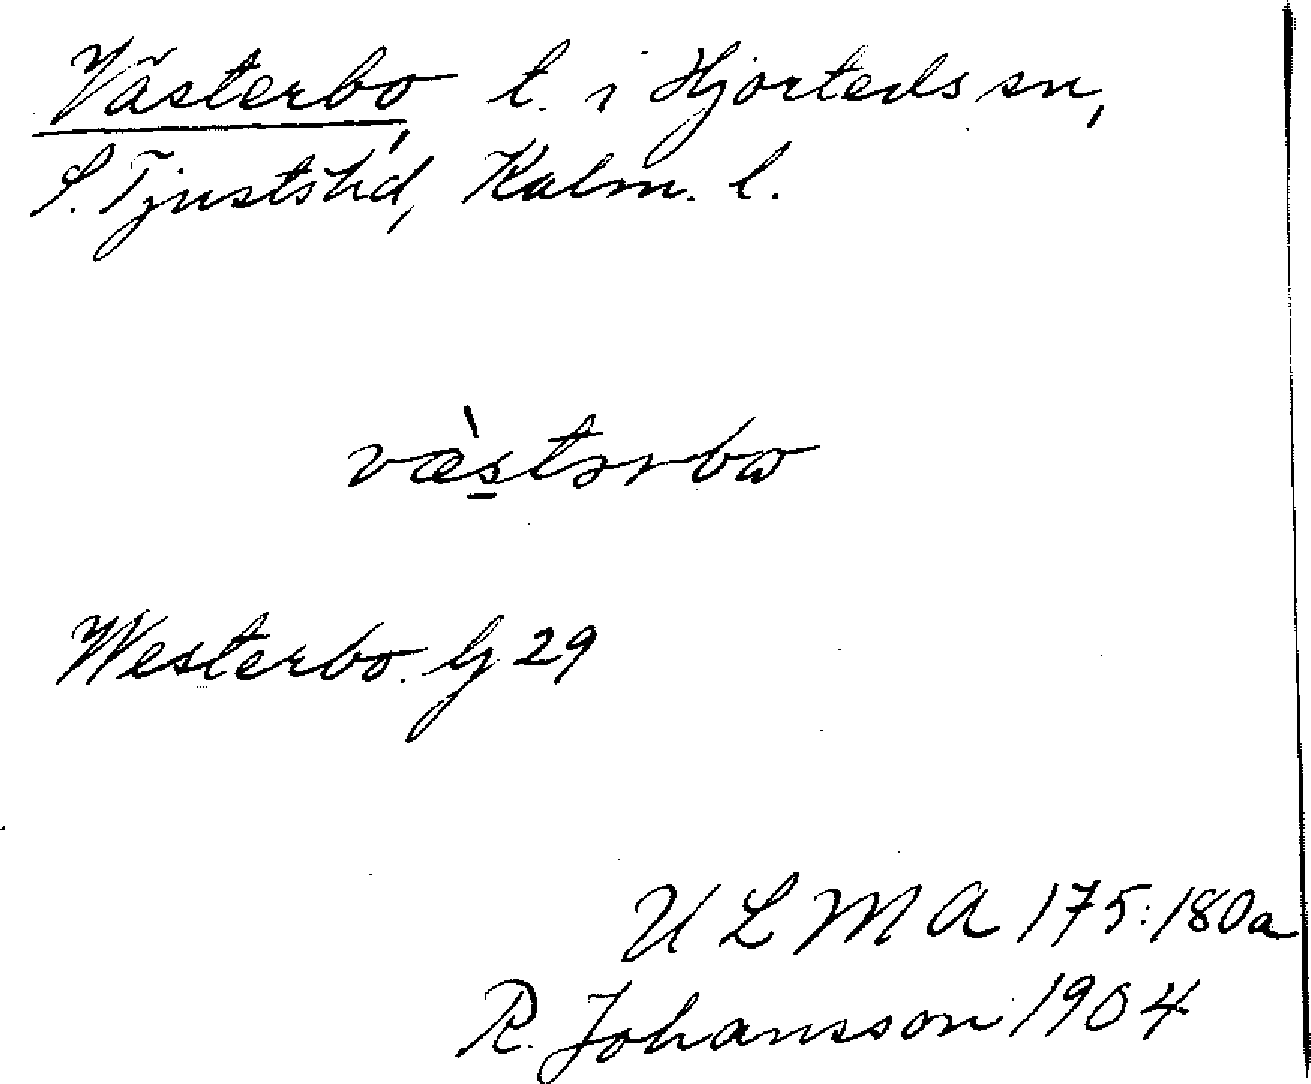 Västerbo, t. i Hjorteds sn,
S. Tjusts hd, Kalm. l.
væ̀s̲tərbω
Westerbo. G 29
U L M A 175:180a
R. Johansson 1904